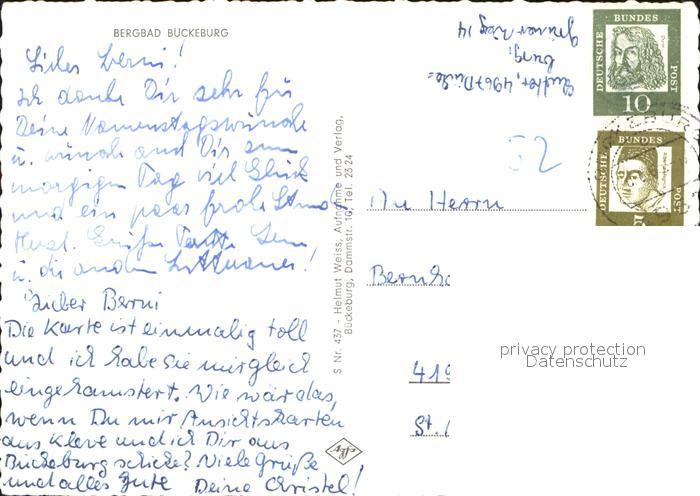 BERGBAD BÜCKEBURG
Lieber Berni!
Ich danke Dir sehr für
Deine Namenstagswünsche
u. wünsche auch Dir zum
morgigen Tag viel Glück
und ein paar frohe Stunden
Herzl. Grüße Tante
u. die andern
Lieber Berni
Die Karte ist einmalig toll
und ich habe sie mir gleich
eingehamstert. Wie wär das,
wenn Du mir Ansichtskarten
aus Kleve und ich Dir aus
Bückeburg schicke? Viele Grüße
und alles Gute Deine Christel!
S Nr. 437 - Helmut Weiss, Aufnahme und Verlag,
Bückeburg, Dammstr. 10, Tel. 2324
4967 Bücke-
burg,
14
52
DEUTSCHE BUNDES POST
10
DEUTSCHE BUNDES POST
5
An Herrn
Bernh
419
St.
privacy protection
Datenschutz